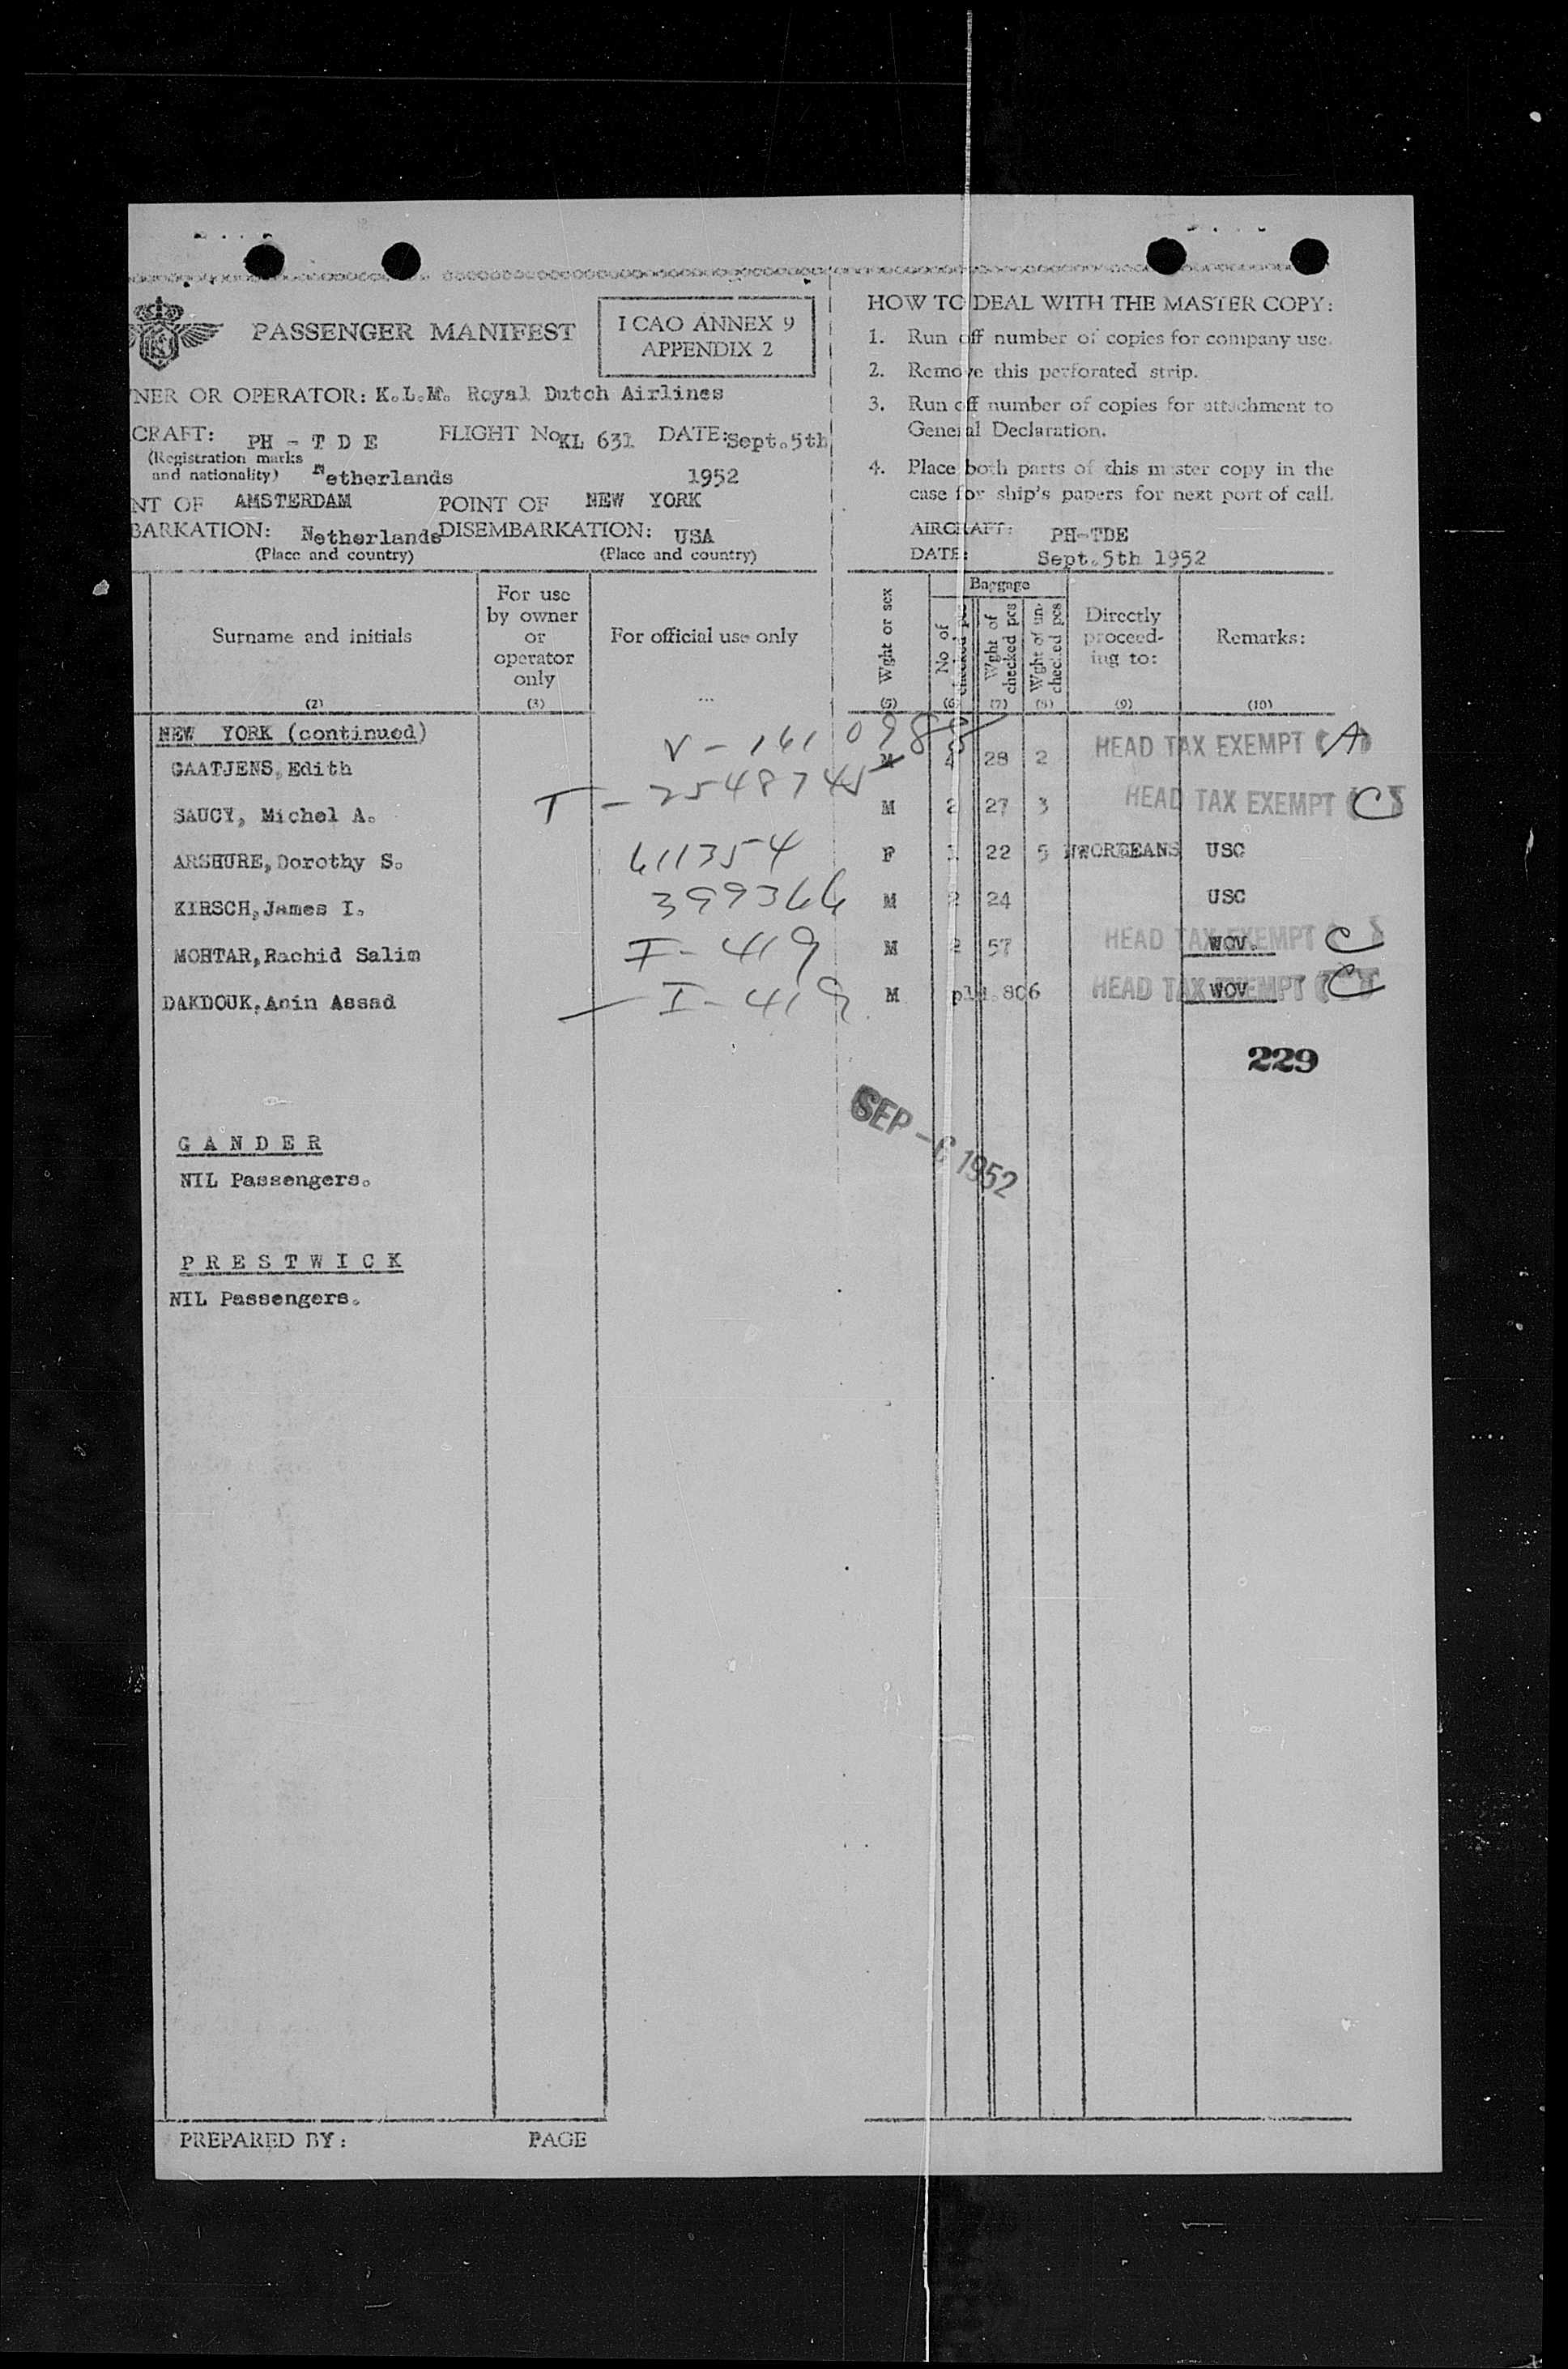 PASSENGER MANIFEST
I CAO ANNEX 9
APPENDIX 2
NER OR OPERATOR: K.L.M. Royal Dutch Airlines
CRAFT: PH - T D E FLIGHT No KL 631 DATE: Sept.5th
(Registration marks
and nationality) Netherlands 1952
NT OF AMSTERDAM POINT OF NEW YORK
BARKATION: Netherlands DISEMBARKATION: USA
(Place and country) (Place and country)
HOW TO DEAL WITH THE MASTER COPY:
1. Run off number of copies for company use.
2. Remove this perforated strip.
3. Run off number of copies for attachment to
General Declaration.
4. Place both parts of this master copy in the
case for ship's papers for next port of call.
AIRCRAFT: PH-TDE
DATE: Sept.5th 1952
Surname and initials
(2)
For use
by owner
or
operator
only
(3)
For official use only
(5) Wght or sex
Baggage
(6) No of checked pcs
(7) Wght of checked pcs
(8) Wght of un-checked pcs
Directly
proceed-
ing to:
(9)
Remarks:
(10)
NEW YORK (continued)
GAATJENS, Edith V - 161 0988 M 4 28 2 HEAD TAX EXEMPT A
SAUCY, Michel A. T - 2548745 M 2 27 3 HEAD TAX EXEMPT C
ARSHURE, Dorothy S. 611354 F 1 22 5 NWORLEANS USC
KIRSCH, James I. 399366 M 2 24 USC
MOHTAR, Rachid Salim I - 419 M 2 57 HEAD TAX EXEMPT WOV. C
DAKDOUK, Amin Assad I - 419 M HEAD TAX EXEMPT WOV C
229
SEP - 6 1952
G A N D E R
NIL Passengers.
P R E S T W I C K
NIL Passengers.
PREPARED BY: PAGE